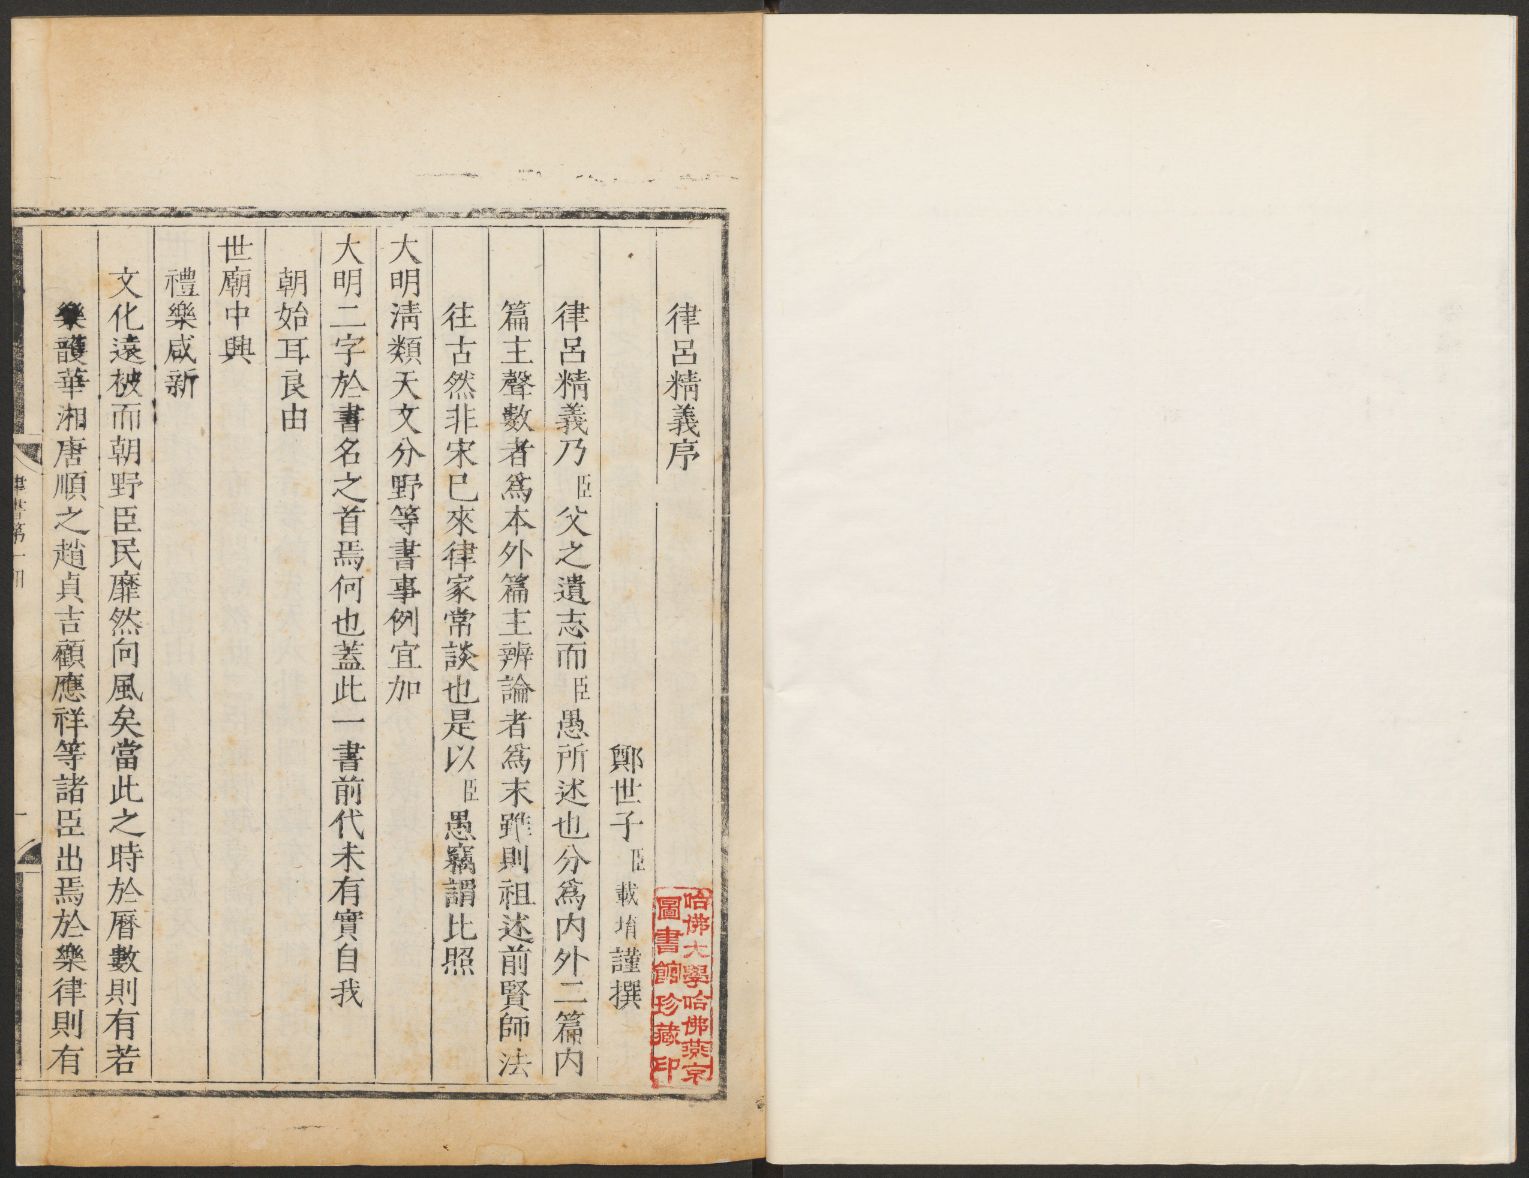 律呂精義序
鄭世子臣載堉謹撰
律呂精義乃臣父之遺志而臣愚所述也分爲内外二篇内
篇主聲數者爲本外篇主辨論者爲末雖則祖述前賢師法
往古然非宋已來律家常談也是以臣愚竊謂比照
大明淸類天文分野等書事例宜加
大明二字於書名之首焉何也蓋此一書前代未有實自我
朝始耳良由
世廟中興
禮樂咸新
文化遠被而朝野臣民靡然向風矣當此之時於曆數則有若
樂頀華湘唐順之趙貞吉顧應祥等諸臣出焉於樂律則有
律書第一冊
一
哈佛大學哈佛燕京
圖書館珍藏印